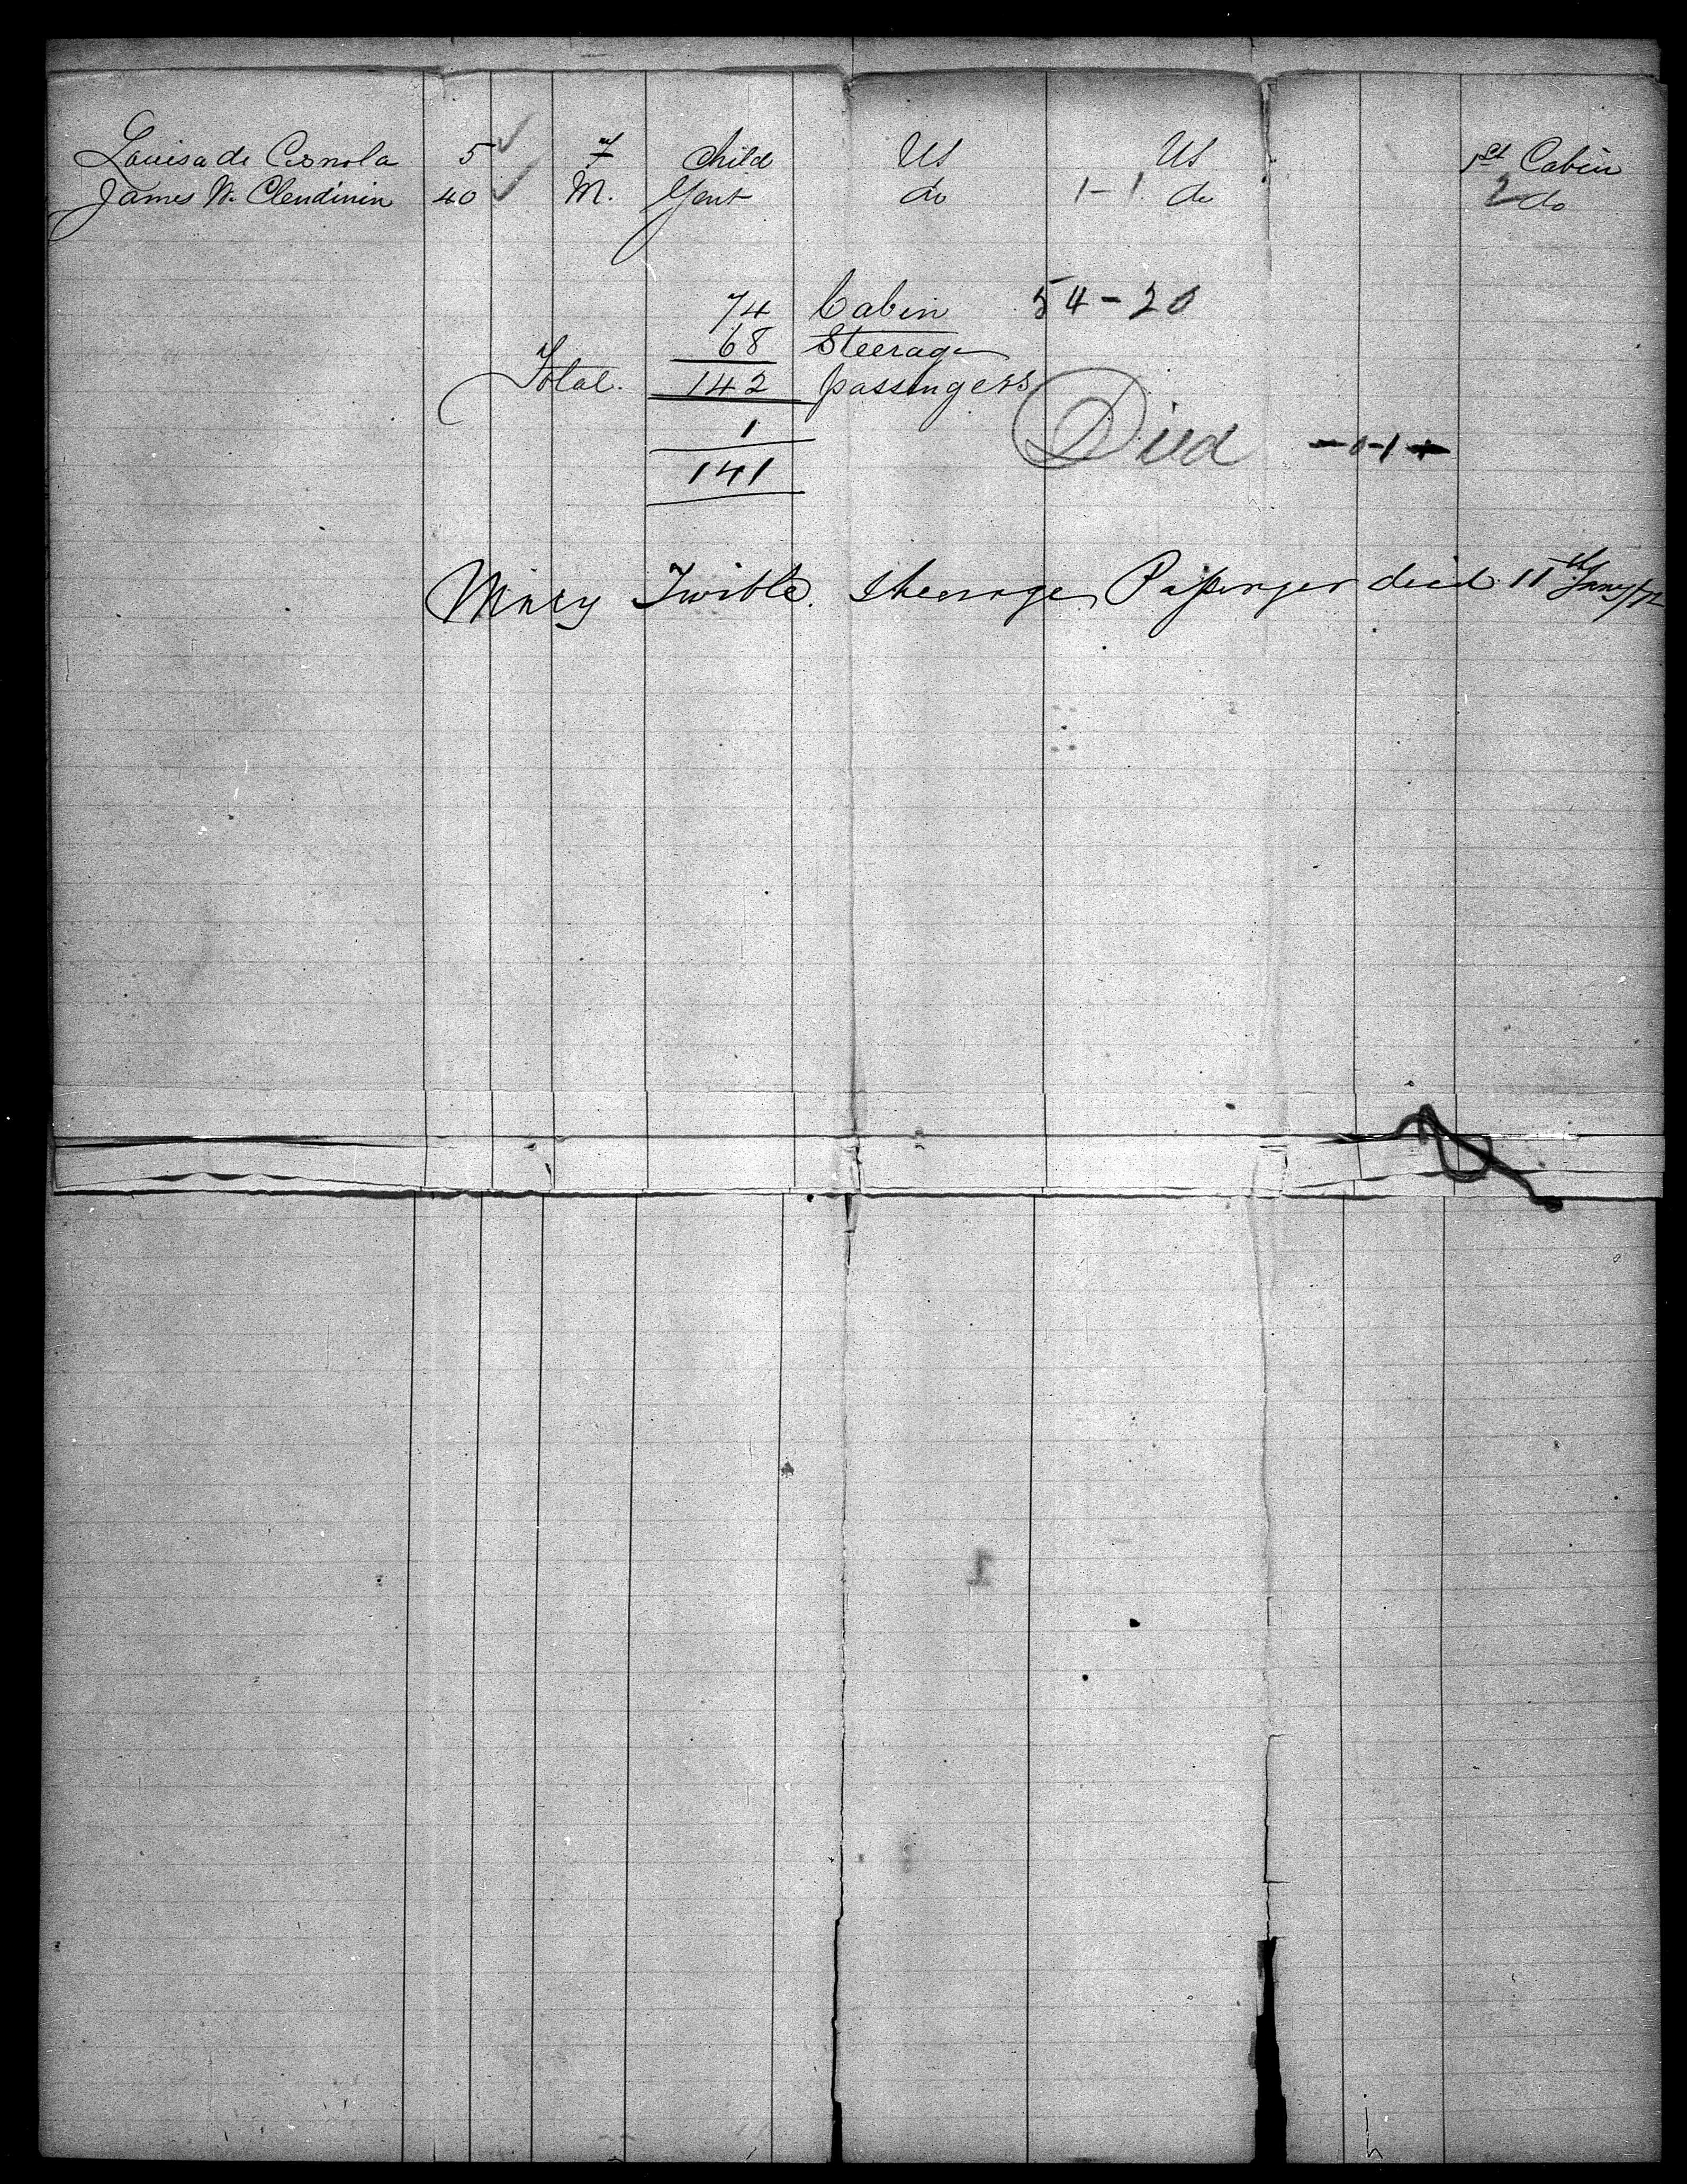 Louisa de Cesnola 5 ✓ F Child US US 1st Cabin
James W. Clendinin 40 ✓ M. Gent do 1-1 do 2 do
74 Cabin 54-20
68 Steerage
Total. 142 passengers
1 Died -0-1+
141
Mary Twible. Steerage Passenger died 11th Jany/72